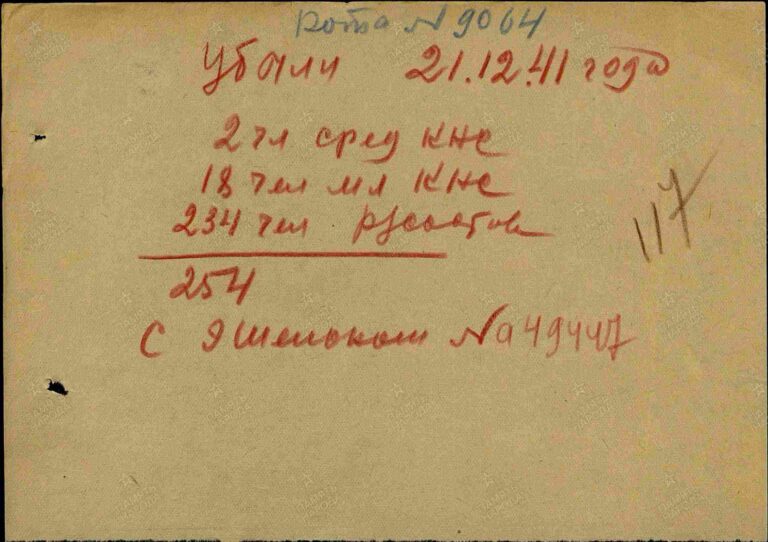 рота N 9064
Убыли 21.12.41 года
2 чл сред КНС
18 чел мл КНС
234 чел
117
254
с Эшелоном № 49447